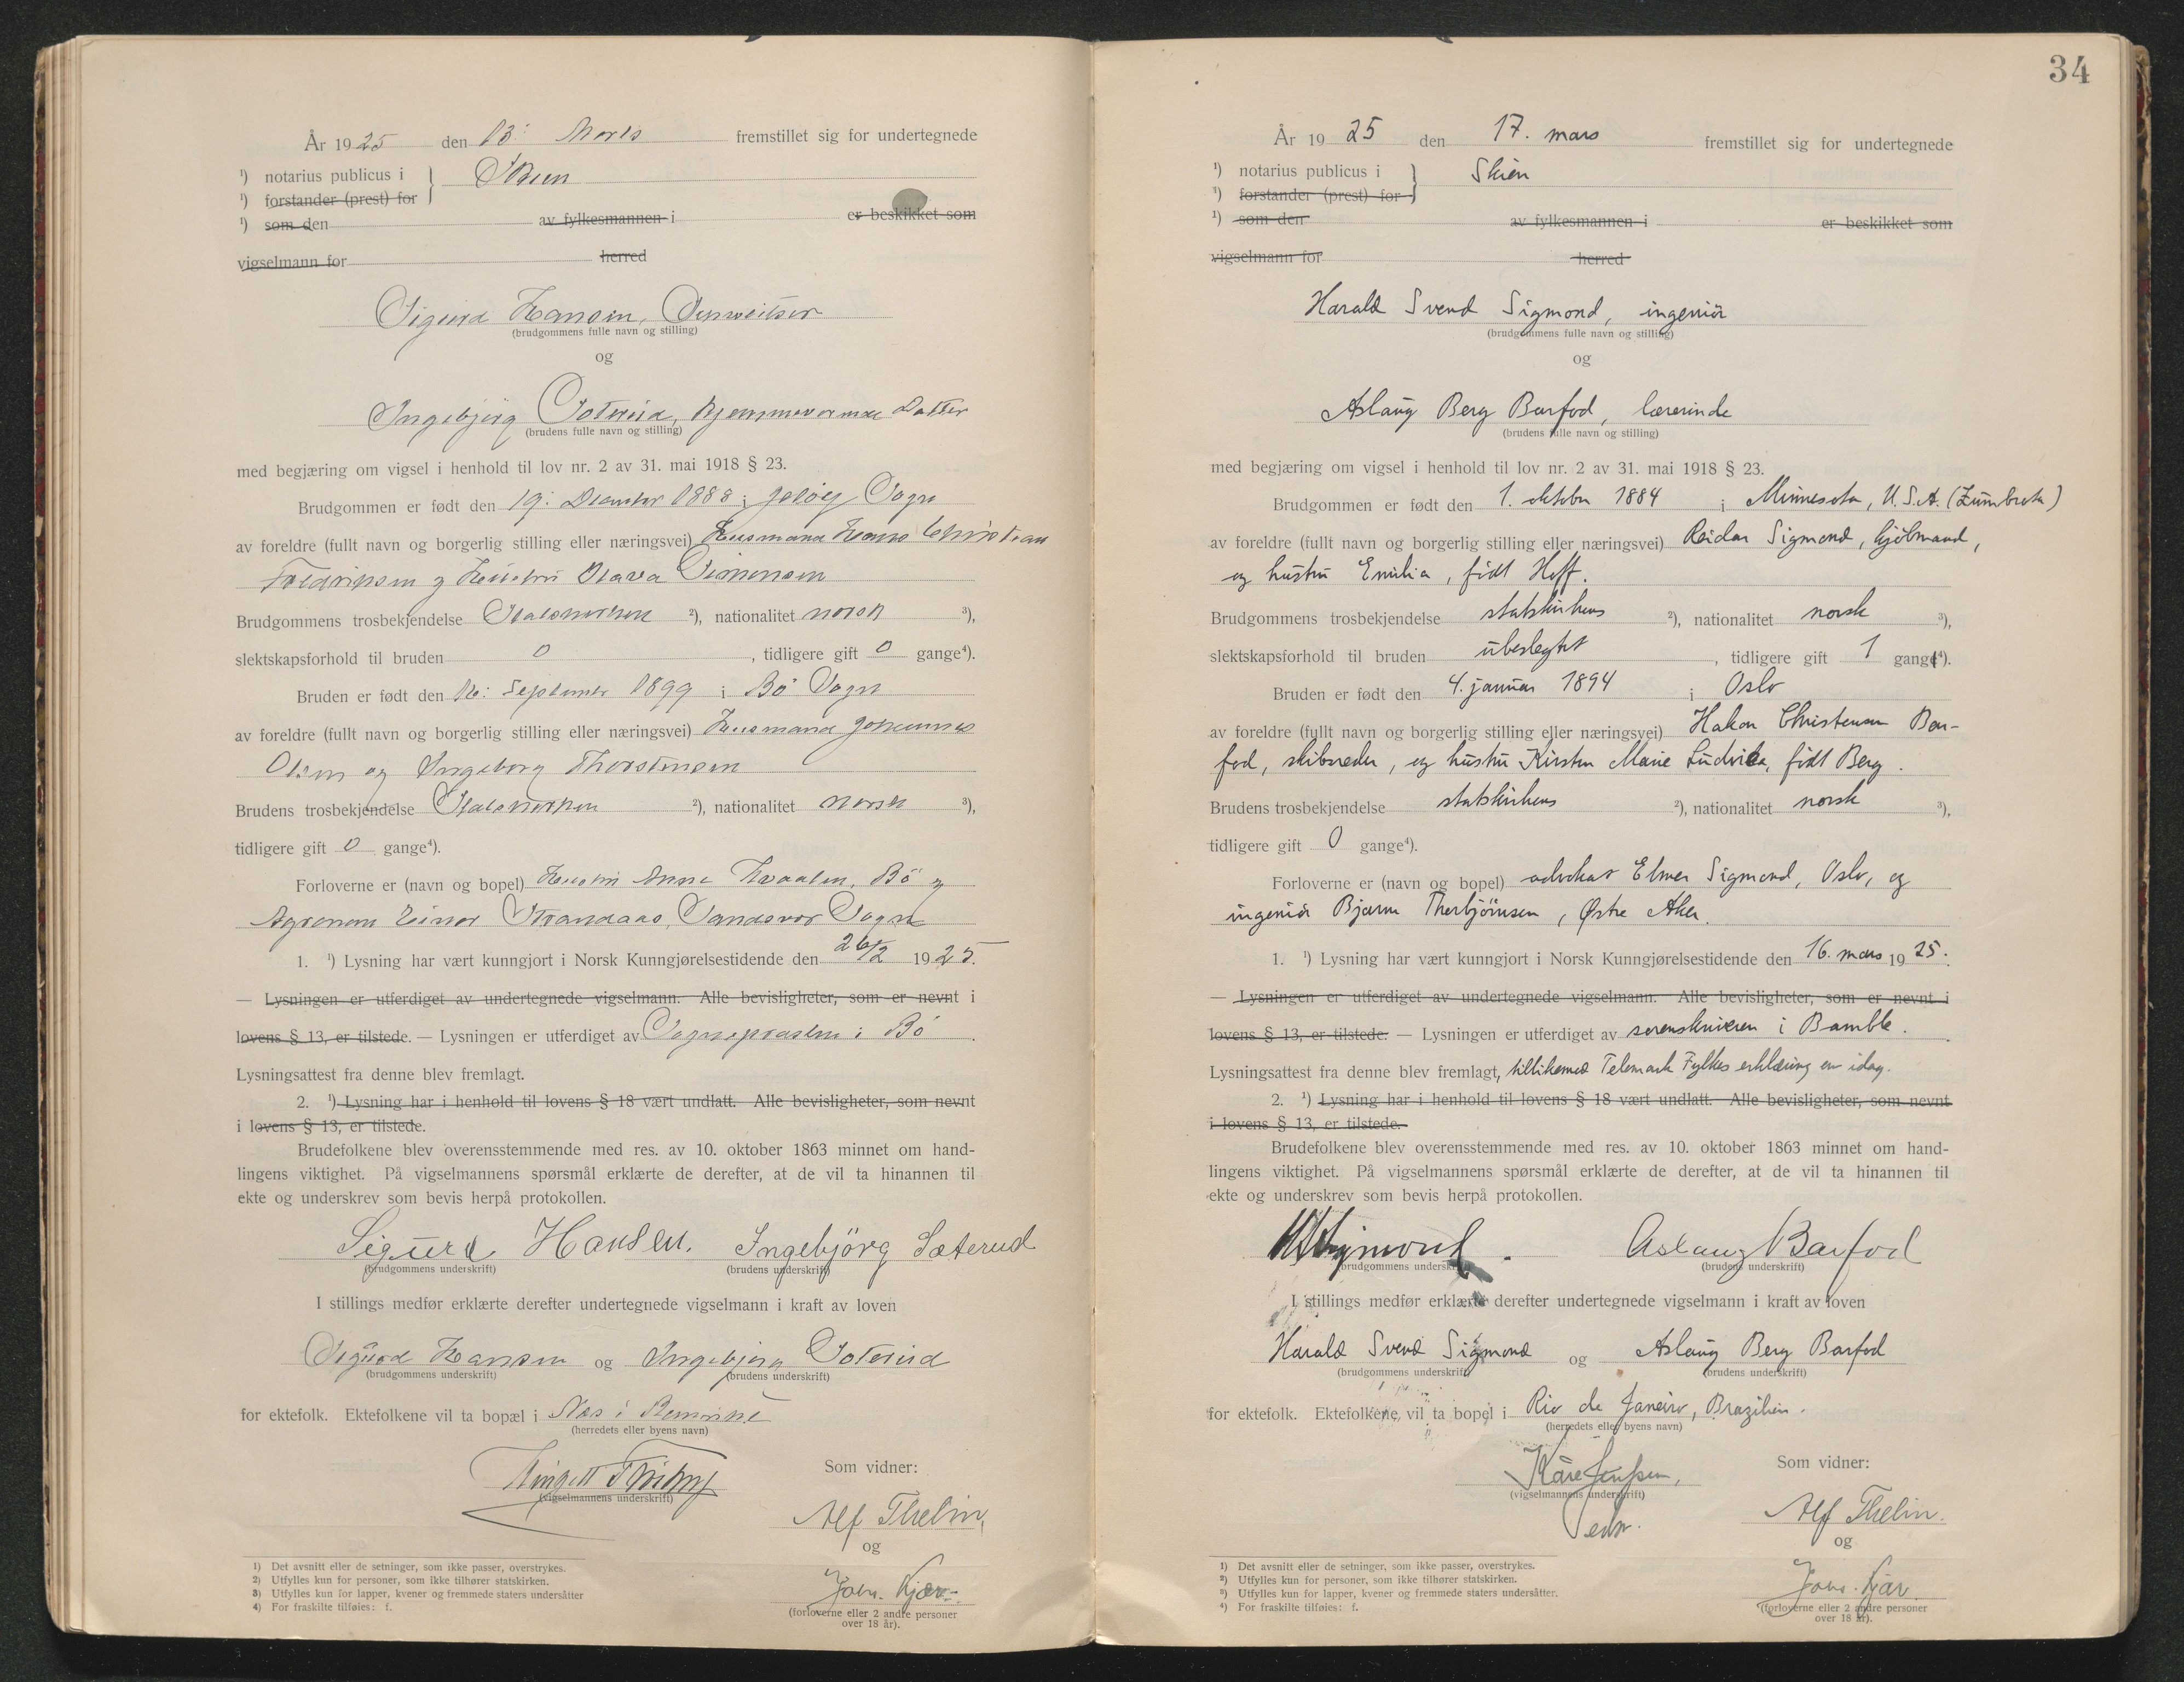 År 1925 den 13: Marts fremstillet sig for undertegnede
¹) notarius publicus i } Skien
¹) forstander (prest) for
¹) som den av fylkesmannen i er beskikket som
vigselmann for herred
Sigurd Hansen,
(brudgommens fulle navn og stilling)
og
Ingebjørg Soterud, hjemmeværende Datter
(brudens fulle navn og stilling)
med begjæring om vigsel i henhold til lov nr. 2 av 31. mai 1918 § 23.
Brudgommen er født den 19: December 1888 i Jeløy Sogn
av foreldre (fullt navn og borgerlig stilling eller næringsvei) Husmand Hans Christian
Fredriksen og Hustru Olava Simensen
Brudgommens trosbekjendelse Statskirken ²), nationalitet norsk ³),
slektskapsforhold til bruden 0, tidligere gift 0 gange⁴).
Bruden er født den September 1899 i Bø Sogn
av foreldre (fullt navn og borgerlig stilling eller næringsvei) Husmand Johannes
Olsen og Ingeborg Thorstensen
Brudens trosbekjendelse Statskirken ²), nationalitet norsk ³),
tidligere gift 0 gange⁴).
Forloverne er (navn og bopel) Hustru Anne Kvaalen, Bø og
Agronom Einar Strandaas, Sandsvær Sogn
1. ¹) Lysning har vært kunngjort i Norsk Kunngjørelsestidende den 26/2 1925.
— Lysningen er utferdiget av undertegnede vigselmann. Alle bevisligheter, som er nevnt i
lovens § 13, er tilstede. — Lysningen er utferdiget av Sognepresten i Bø
Lysningsattest fra denne blev fremlagt.
2. ¹) Lysning har i henhold til lovens § 18 vært undlatt. Alle bevisligheter, som nevnt
i lovens § 13, er tilstede.
Brudefolkene blev overensstemmende med res. av 10. oktober 1863 minnet om hand-
lingens viktighet. På vigselmannens spørsmål erklærte de derefter, at de vil ta hinannen til
ekte og underskrev som bevis herpå protokollen.
Sigurd Hansen. Ingebjörg Sæterud
(brudgommens underskrift) (brudens underskrift)
I stillings medfør erklærte derefter undertegnede vigselmann i kraft av loven
Sigurd Hansen og Ingebjørg Soterud
(brudgommens underskrift) (brudens underskrift)
for ektefolk. Ektefolkene vil ta bopæl i Næs i
(herredets eller byens navn)
(vigselmannens underskrift)
Som vidner:
Alf Thelin,
og
Johs. Kjær.
(forloverne eller 2 andre personer
over 18 år).
1) Det avsnitt eller de setninger, som ikke passer, overstrykes.
2) Utfylles kun for personer, som ikke tilhører statskirken.
3) Utfylles kun for lapper, kvener og fremmede staters undersåtter
4) For fraskilte tilføies: f.
34
År 1925 den 17. mars fremstillet sig for undertegnede
¹) notarius publicus i } Skien
¹) forstander (prest) for
¹) som den av fylkesmannen i er beskikket som
vigselmann for herred
Harald Svend Sigmond, ingeniör
(brudgommens fulle navn og stilling)
og
Aslaug Berg Barfod, lærerinde
(brudens fulle navn og stilling)
med begjæring om vigsel i henhold til lov nr. 2 av 31. mai 1918 § 23.
Brudgommen er født den 1. oktober 1884 i Minnesota, U.S.A. (Zumbrota)
av foreldre (fullt navn og borgerlig stilling eller næringsvei) Reidar Sigmond, kjöbmand,
og hustru Emilia, födt Hoff.
Brudgommens trosbekjendelse statskirkens ²), nationalitet norsk ³),
slektskapsforhold til bruden ubeslegtet, tidligere gift 1 gang⁴).
Bruden er født den 4. januar 1894 i Oslo
av foreldre (fullt navn og borgerlig stilling eller næringsvei) Hakon Christensen Bar-
fod, skibsreder, og hustru Kirsten Marie Ludvika, födt Berg.
Brudens trosbekjendelse statskirkens ²), nationalitet norsk ³),
tidligere gift 0 gange⁴).
Forloverne er (navn og bopel) advokat Elmer Sigmond, Oslo, og
ingeniör Bjarne Thorbjörnsen, Østre Aker.
1. ¹) Lysning har vært kunngjort i Norsk Kunngjørelsestidende den 16. mars 1925.
— Lysningen er utferdiget av undertegnede vigselmann. Alle bevisligheter, som er nevnt i
lovens § 13, er tilstede. — Lysningen er utferdiget av sorenskriveren i Bamble.
Lysningsattest fra denne blev fremlagt, tillikemed Telemark Fylkes erklæring av idag.
2. ¹) Lysning har i henhold til lovens § 18 vært undlatt. Alle bevisligheter, som nevnt
i lovens § 13, er tilstede.
Brudefolkene blev overensstemmende med res. av 10. oktober 1863 minnet om hand-
lingens viktighet. På vigselmannens spørsmål erklærte de derefter, at de vil ta hinannen til
ekte og underskrev som bevis herpå protokollen.
HSSigmond. Aslaug Barfod
(brudgommens underskrift) (brudens underskrift)
I stillings medfør erklærte derefter undertegnede vigselmann i kraft av loven
Harald Svend Sigmond og Aslaug Berg Barfod
(brudgommens underskrift) (brudens underskrift)
for ektefolk. Ektefolkene vil ta bopel i Rio de Janeiro, Brazilien.
(herredets eller byens navn)
Kåre Jenssen,
(vigselmannens underskrift)
edsv.
Som vidner:
Alf Thelin.
og
Johs. Kjær
(forloverne eller 2 andre personer
over 18 år).
1) Det avsnitt eller de setninger, som ikke passer, overstrykes.
2) Utfylles kun for personer, som ikke tilhører statskirken.
3) Utfylles kun for lapper, kvener og fremmede staters undersåtter.
4) For fraskilte tilføies: f.